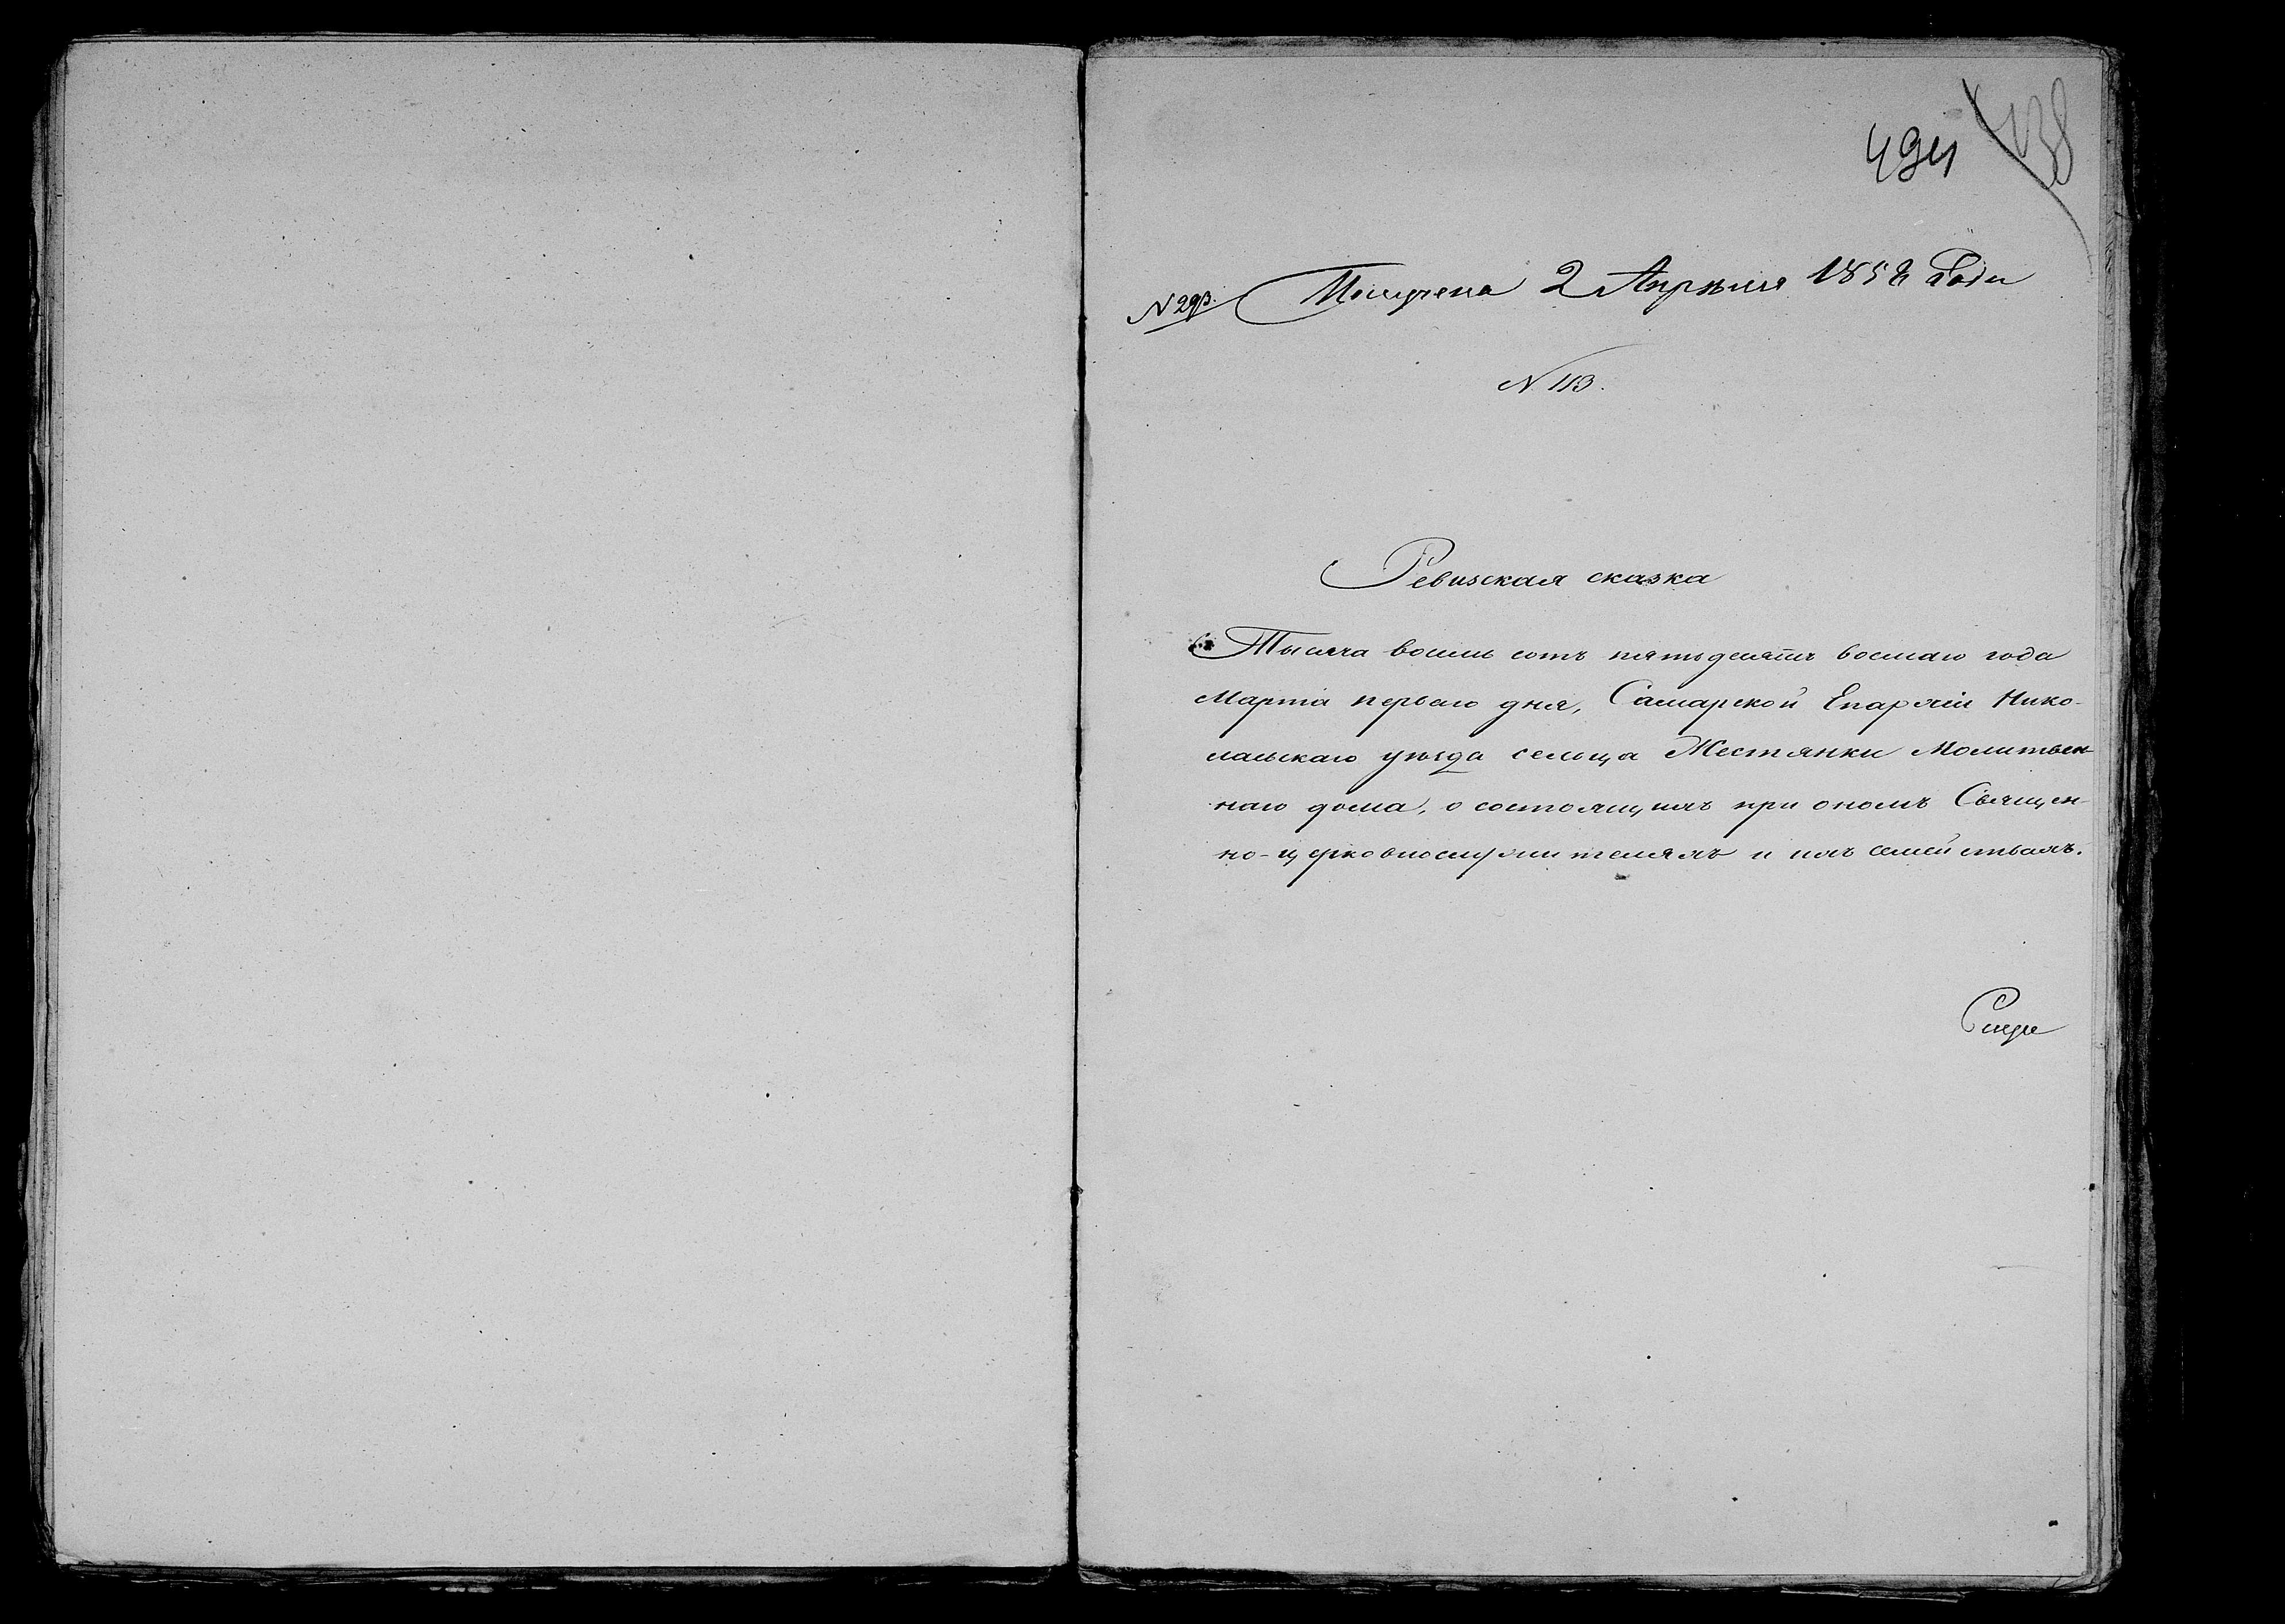 494
438
N 293. Получена 2 Апрѣля 1858 года
N 113.
Ревизская сказка
Тысяча восемь сотъ пятьдесятъ восмаго года
Марта перваго дня, Самарской Епархіи Нико-
лаевскаго уѣзда сельца Жестянки Молитвен-
наго дома, о состоящихъ при ономъ Священ-
но-церковнослужителяхъ и ихъ семействахъ.